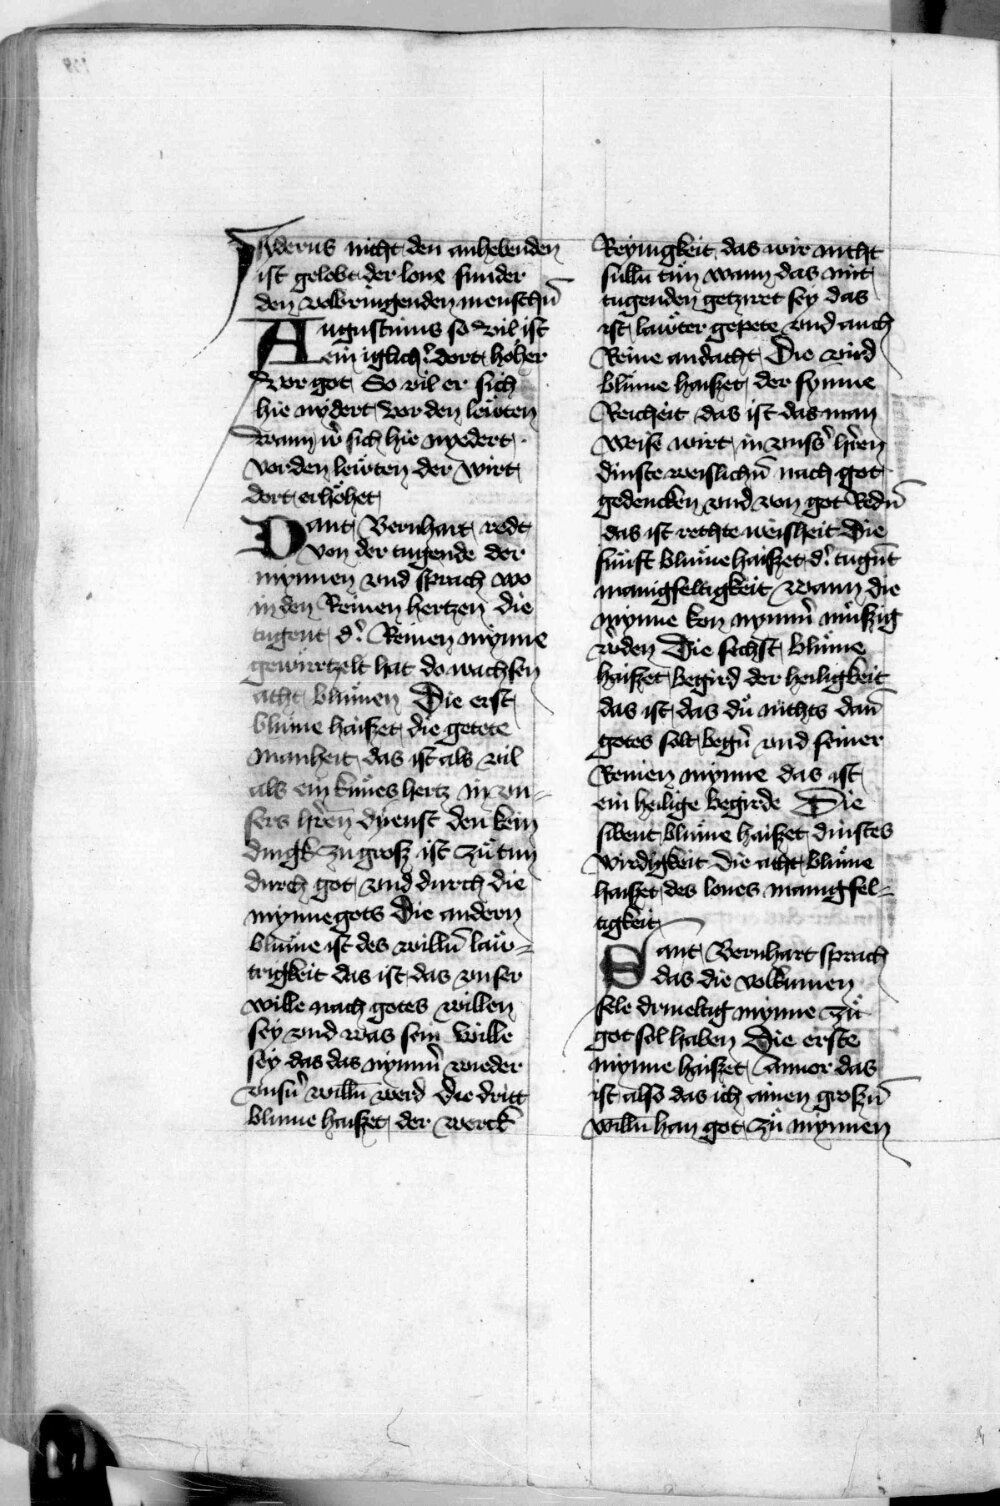 Jsyderus nicht den anhebenden
ist gelobt der lone sunder
den volbringenden menschn̄
Augustinus so vil ist
ein iglich͛ dort hoher
vor got So vil er sich
hie nydert vor den lewten
wann w͛ sich hie nyedert
vor den lewten der wirt
dort erhöhet
Sant Bernhart redt
von der tugende der
mynnen vnd sprach wo
in den Reinen hertzen die
tugent d͛ Reinen mynne
gewurtzelt hat do wachsen
acht blumen Die erst
blume haiszet die getete
manheit das ist als vil
als ein kunes hertz in vn-
sers h͛ren dyenst den kein
dingk zu grosz ist zů tun
durch got vnd durch die
mynne gots Die andern
blume ist des willn̄ law-
trigkeit das ist das vnser
wille nach gotes willen
sey vnd was sein wille
sey das das nymm͛ wieder
vnsn͛ willn̄ werd Die dritt
blume haiszet der werck
Reynigkeit das wir nicht
sulln̄ tun wann das mit
tugenden getziret sey das
ist lauter gepete vnd auch
Reine andacht Die vird
blume haiszet der synne
Reicheit das ist das man
weise wirt in vnss͛ h͛ren
dinste weislichn̄ nach got
gedencken vnd von got Redn̄
das ist rechte weisheit Die
funft blume haiszet d͛ tugn̄t
manigfeltigkeit wann die
mynne kon nymm͛ muszig
w͛den Die sechst blume
haiszet begird der heiligkeit
das ist das du nichts dan̄
gotes solt beg͛n vnd seiner
Reinen mynne das ist
ein heilige begirde Die
sibent blume haiszet dinstes
wirdigkeit die acht blume
haiszet des lones manigfel-
tigkeit
Sant Bernhart sprach
das die volkumen
sele driueltig mynne zů
got sol haben Die erste
mynne haiszet Amor das
ist also das ich ainen groszn̄
willn̄ han got zů mynnen